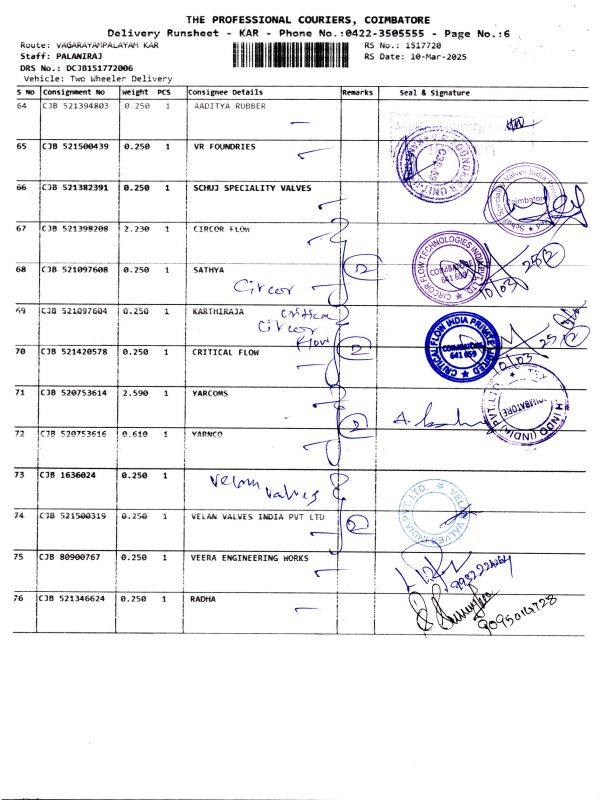 THE PROFESSIONAL COURIERS, COIMBATORE
Delivery Runsheet - KAR - Phone No.:0422-3505555 - Page No.:6
Route: VAGARAYAMPALAYAM KAR
RS No.: 1517720
Staff: PALANIRAJ
RS Date: 10-Mar-2025
DRS No.: DCJB151772006
Vehicle: Two Wheeler Delivery
S No Consignment No Weight PCS Consignee Details Remarks Seal & Signature
64 CJB 521394803 0.250 1 AADITYA RUBBER
65 CJB 521500439 0.250 1 VR FOUNDRIES
66 CJB 521382391 0.250 1 SCHUJ SPECIALITY VALVES
Coimbatore
67 CJB 521398208 2.230 1 CIRCOR FLOW
CIRCOR FLOW TECHNOLOGIES INDIA PVT. LTD.
COIMBATORE
641 659
68 CJB 521097608 0.250 1 SATHYA 2
Circor
10/03
69 CJB 521097604 0.250 1 KARTHIRAJA
critical
Circor
flow
CRITICAL FLOW INDIA PRIVATE LIMITED
COIMBATORE
641 659
70 CJB 521420578 0.250 1 CRITICAL FLOW 2
10/03
71 CJB 520753614 2.590 1 YARCOMS
HINDO (INDIA) PVT. LTD.
COIMBATORE
2
72 CJB 520753616 0.610 1 YARNCO
73 CJB 1636024 0.250 1
Velan
Valves
VELAN VALVES INDIA PVT. LTD.
74 CJB 521500319 0.250 1 VELAN VALVES INDIA PVT LTD 2
75 CJB 80900767 0.250 1 VEERA ENGINEERING WORKS
76 CJB 521346624 0.250 1 RADHA
9095014728